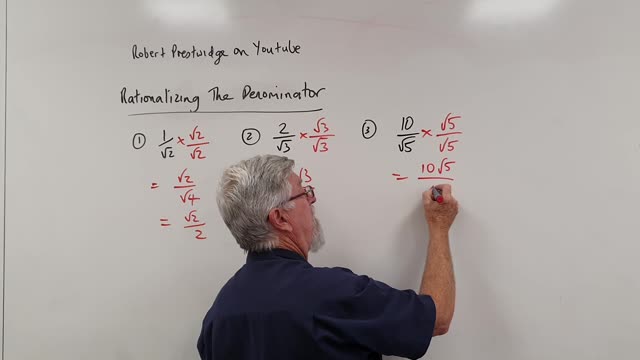 Robert Prestwidge on Youtube
Rationalizing The Denominator
① 1/√2 × √2/√2 ② 2/√3 × √3/√3 ③ 10/√5 × √5/√5
= √2/√4 √3 = 10√5
= √2/2